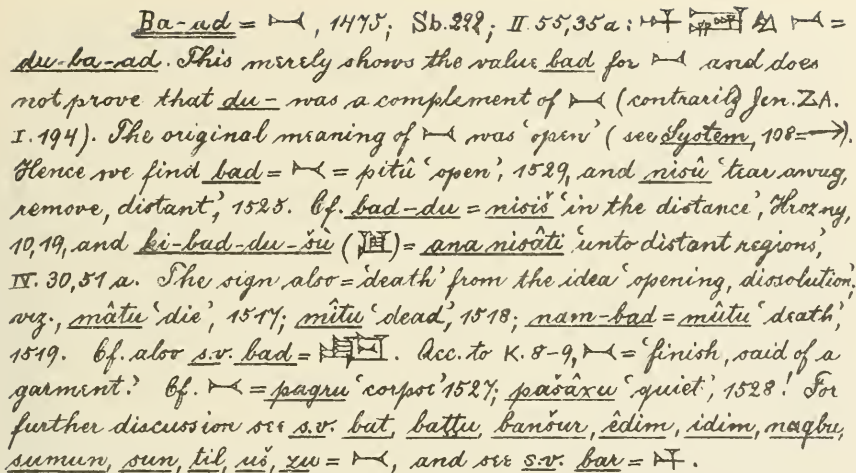 Ba-ad = 𒁁, 1475; Sb. 292; II. 55, 35a: 𒁁 =
du-ba-ad. This merely shows the value bad for 𒁁 and does
not prove that du- was a complement of 𒁁 (contrarily Jen. ZA.
I. 194). The original meaning of 𒁁 was 'open' (see System, 108 →).
Hence we find bad = 𒁁 = pitû 'open', 1529, and nisû 'tear away,
remove, distant', 1525. Cf. bad-du = nisiš 'in the distance', Hrozny,
10, 19, and ki-bad-du-šù = ana nisâti 'unto distant regions,'
IV. 30, 51 a. The sign also = 'death' from the idea 'opening, dissolution',
viz., mâtu 'die', 1517; mîtu 'dead', 1518; nam-bad = mûtu 'death',
1519. Cf. also s.v. bad = . Acc. to K. 8-9, 𒁁 = 'finish, said of a
garment.' Cf. 𒁁 = pagru 'corpse' 1527; pašâxu 'quiet', 1528! For
further discussion see s.v. bat, battu, banšur, êdim, idim, nagbu,
sumun, sun, til, uš, zu = 𒁁, and see s.v. bar = 𒁇.